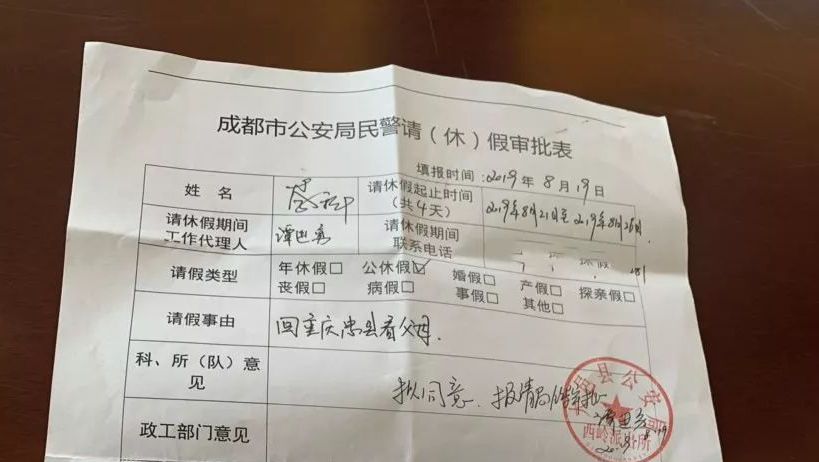 成都市公安局民警请（休）假审批表
填报时间：2019年8月19日
姓 名
请休假起止时间（共4天）
2019年8月21日至2019年8月26日.
请休假期间工作代理人
请休假期间联系电话
281
请假类型
年休假□ 公休假☑ 婚假□ 产假□ 探亲假□
丧假□ 病假□ 事假□ 其他□
请假事由
回重庆忠县看父母.
科、所（队）意见
拟同意、报请局领导审批
县公安局
西岭派出所
政工部门意见